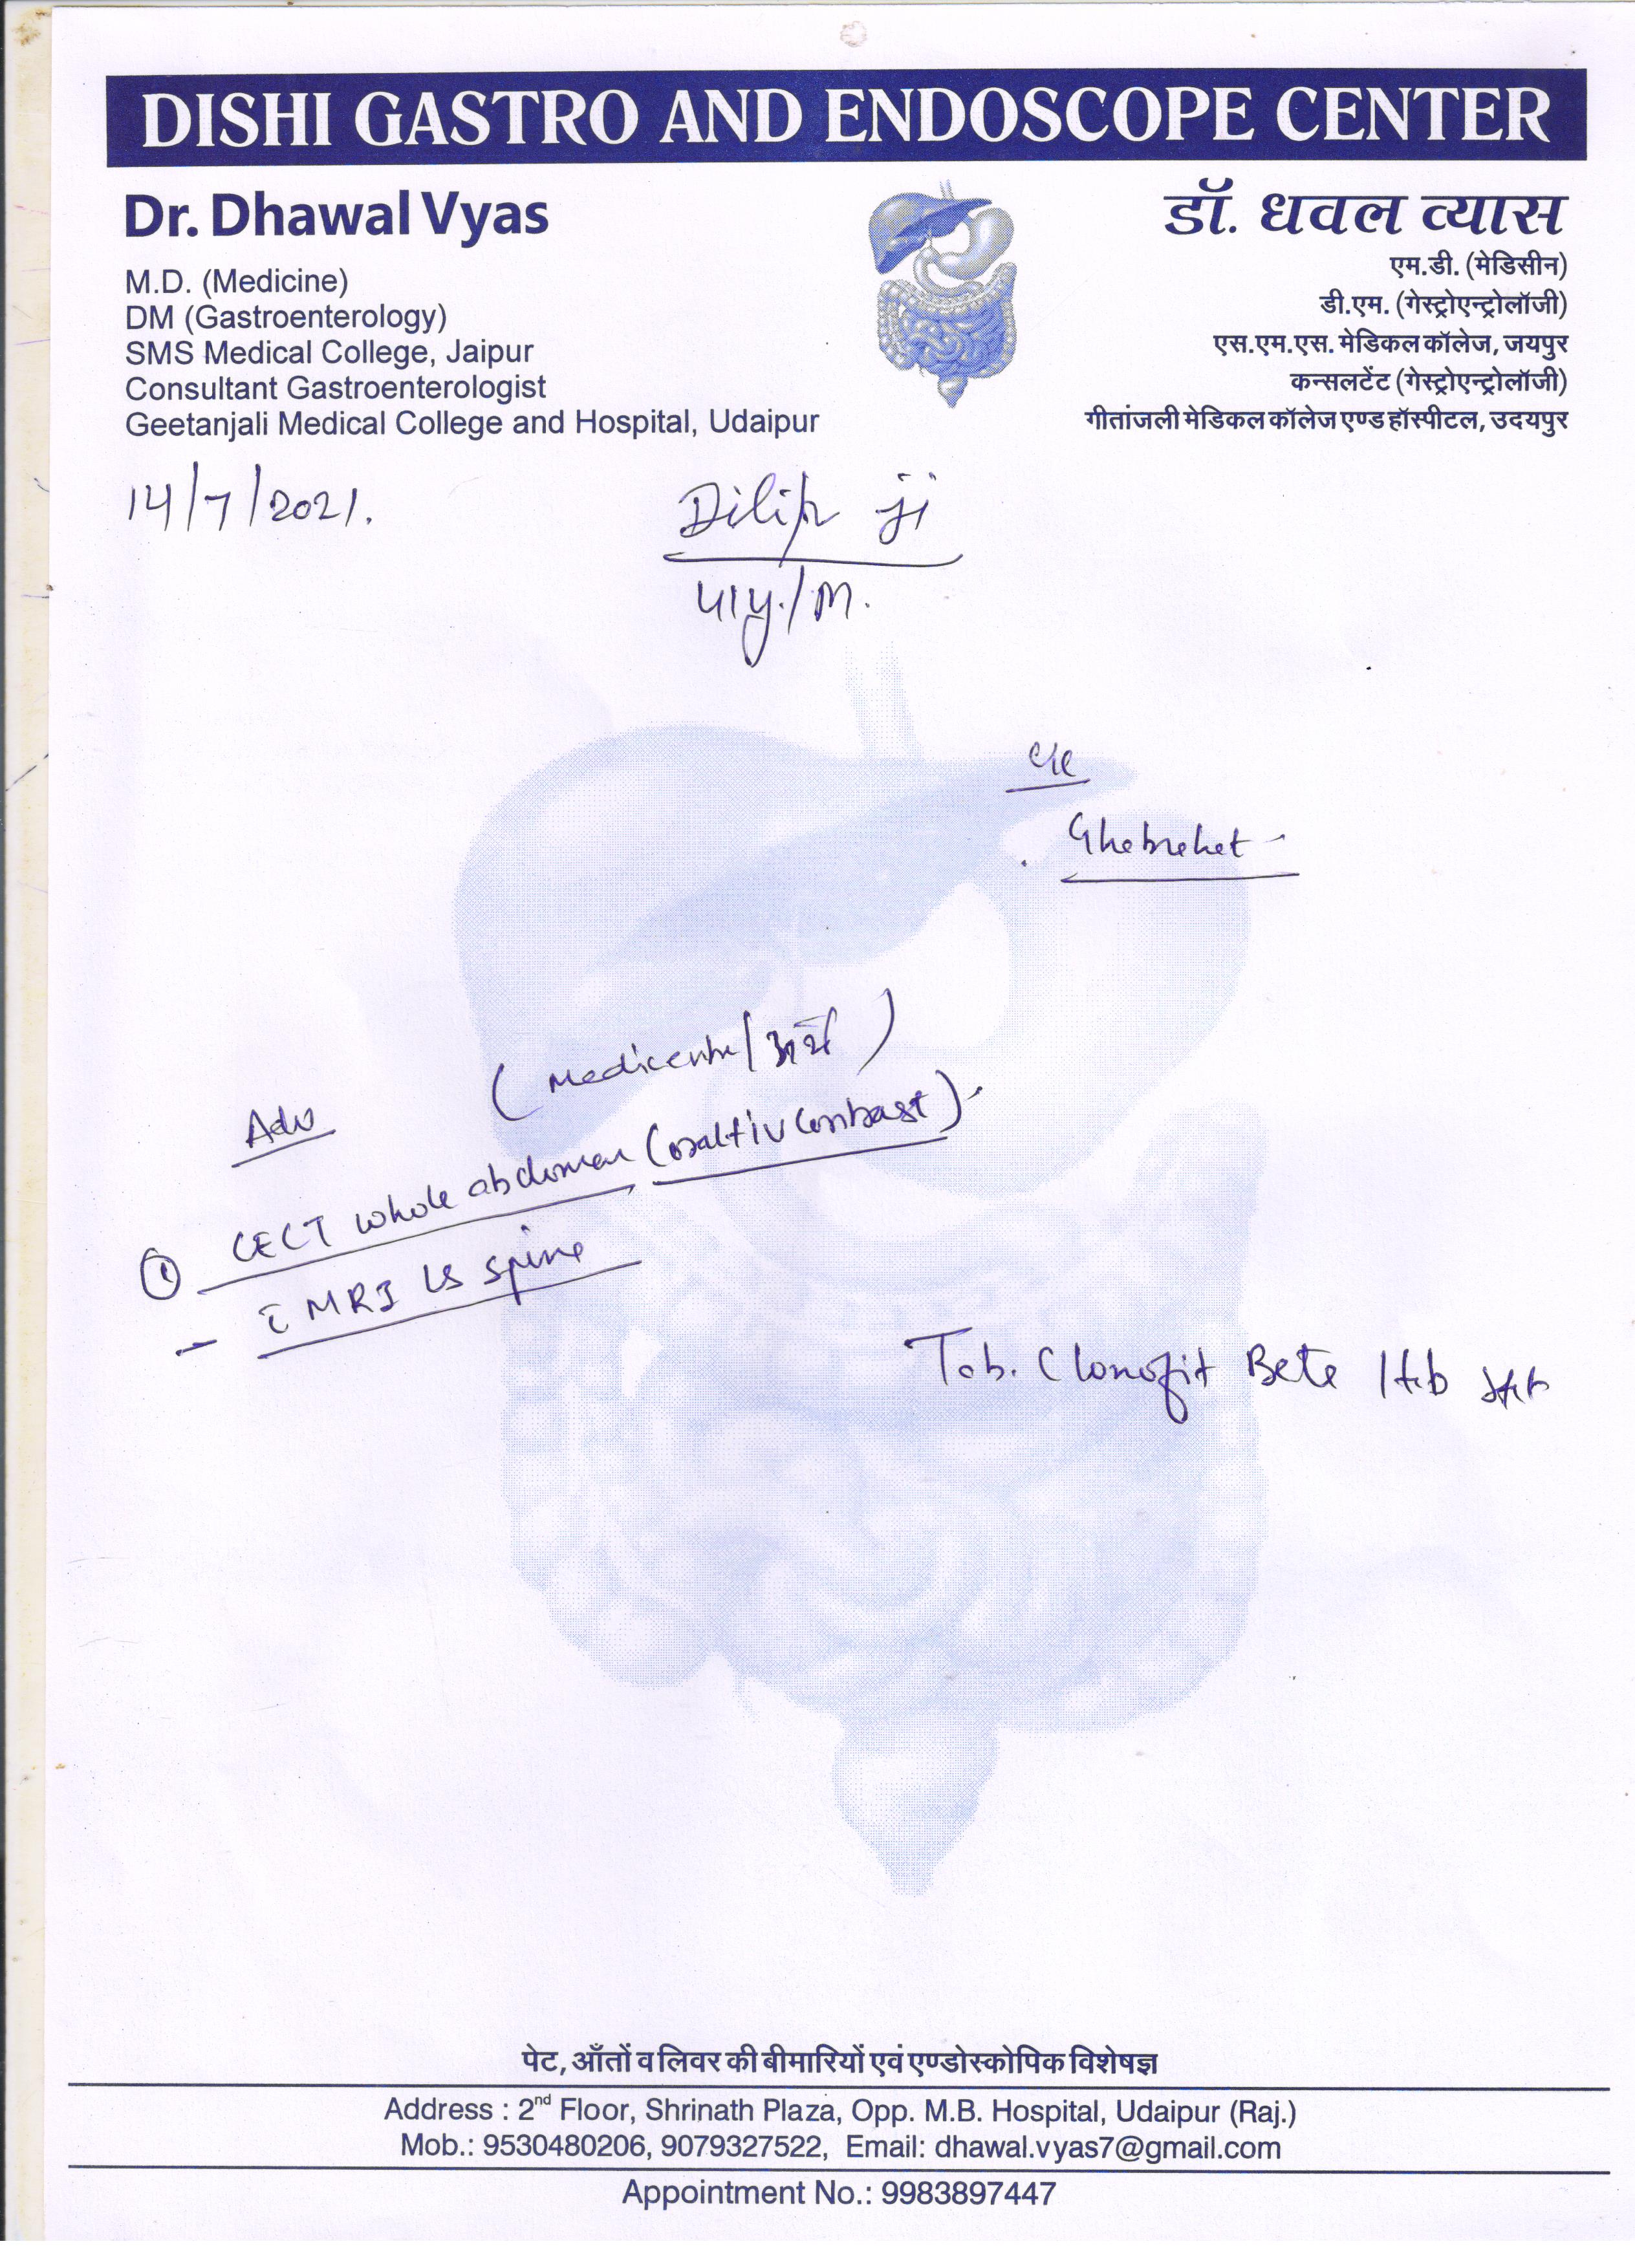 DISHI GASTRO AND ENDOSCOPE CENTER
Dr. Dhawal Vyas
M.D. (Medicine)
DM (Gastroenterology)
SMS Medical College, Jaipur
Consultant Gastroenterologist
Geetanjali Medical College and Hospital, Udaipur
डॉ. धवल व्यास
एम.डी. (मेडिसीन)
डी.एम. (गेस्ट्रोएन्ट्रोलॉजी)
एस.एम.एस. मेडिकल कॉलेज, जयपुर
कन्सलटेंट (गेस्ट्रोएन्ट्रोलॉजी)
गीतांजली मेडिकल कॉलेज एण्ड हॉस्पीटल, उदयपुर
14/7/2021.
Dilip ji
41y./M.
Ghebrehet
(Medicentre/अर्थ)
Adv
① CECT whole abdomen (oral+iv contrast).
- c̄ MRI LS spine
Tab. Clonofit Beta 1tab
पेट, आँतों व लिवर की बीमारियों एवं एण्डोस्कोपिक विशेषज्ञ
Address : 2nd Floor, Shrinath Plaza, Opp. M.B. Hospital, Udaipur (Raj.)
Mob.: 9530480206, 9079327522, Email: dhawal.vyas7@gmail.com
Appointment No.: 9983897447